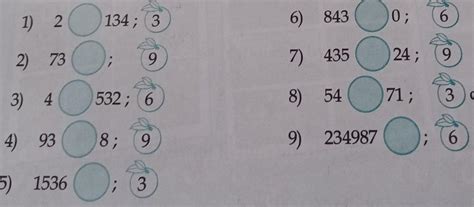 1) 2 134 ; 3
2) 73 ; 9
3) 4 532 ; 6
4) 93 8 ; 9
5) 1536 ; 3
6) 843 0 ; 6
7) 435 24 ; 9
8) 54 71 ; 3
9) 234987 ; 6